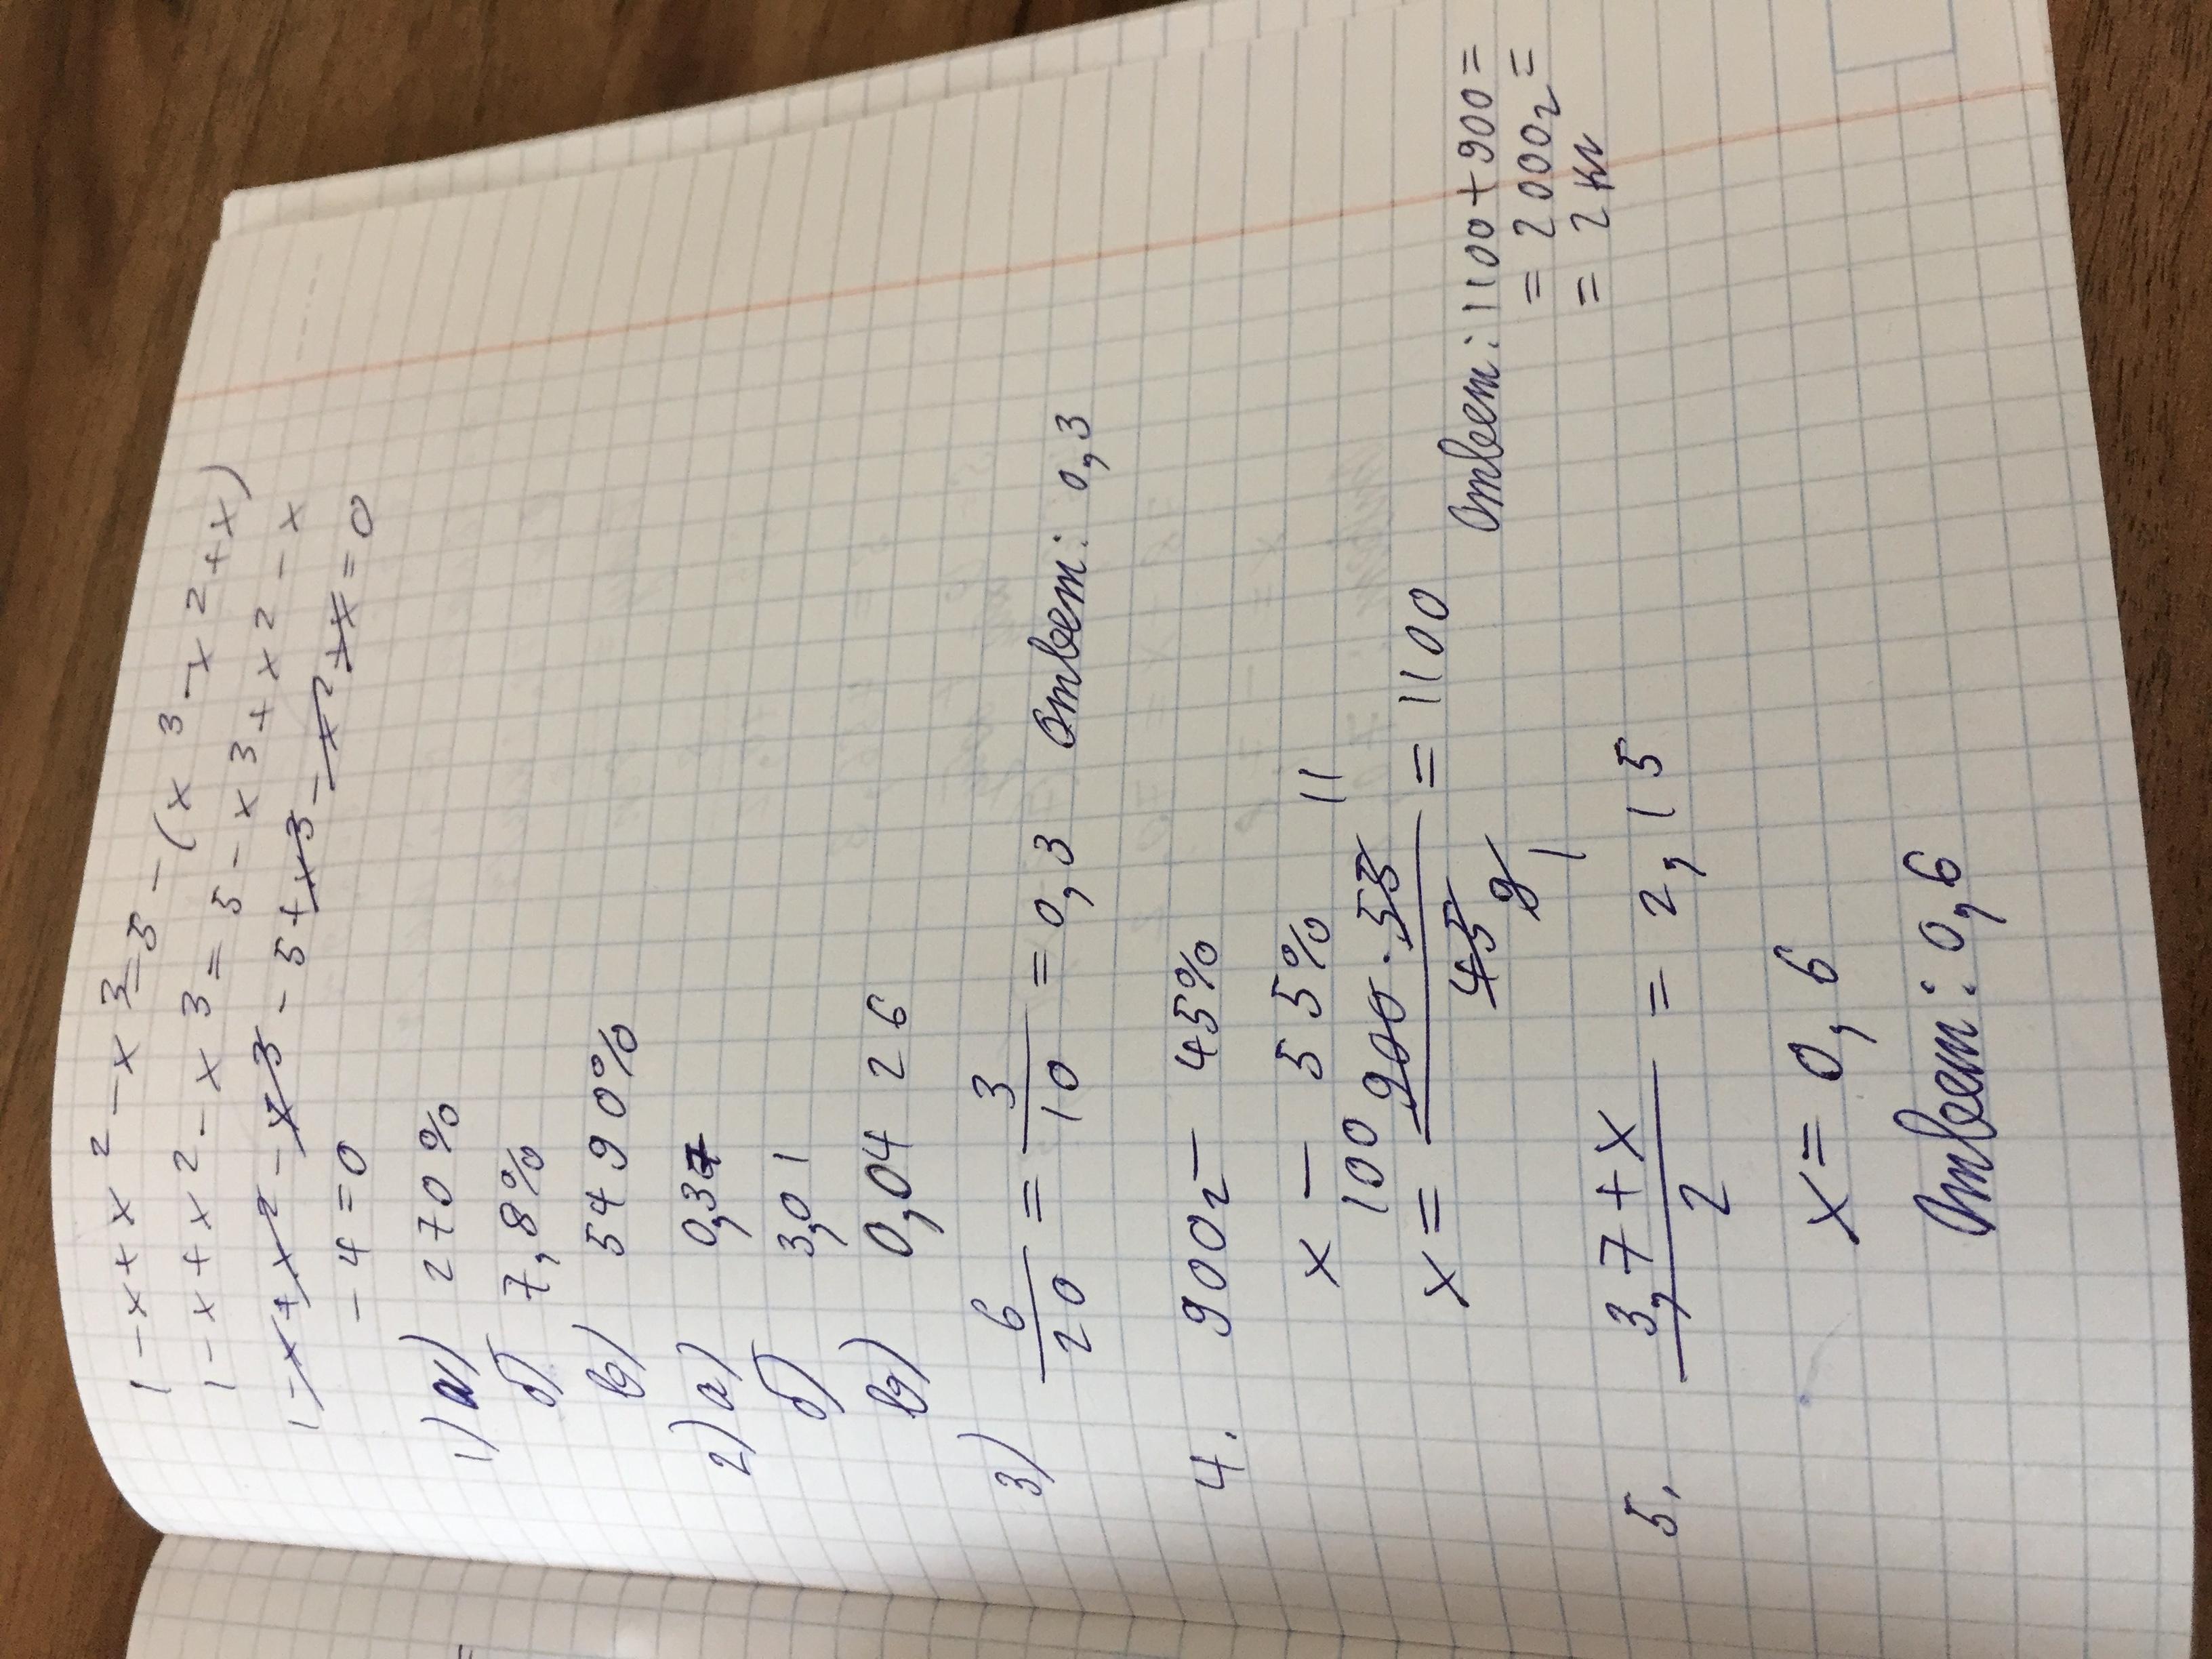 1 - x + x² - x³ = 5 - (x³ - x² + x)
1 - x + x² - x³ = 5 - x³ + x² - x
1 - x + x² - x³ - 5 + x³ - x² + x = 0
- 4 = 0
1) а) 270%
б) 7,8%
в) 5490%
2) а) 0,37
б) 3,01
в) 0,0426
3) 6/20 = 3/10 = 0,3 Ответ: 0,3
4. 900г — 45%
x — 55%
x = 900 · 55 / 45 = 1100
100 11
9
1
Ответ: 1100 + 900 =
= 2000г =
= 2 кг
5. 3,7 + x / 2 = 2,15
x = 0,6
Ответ: 0,6